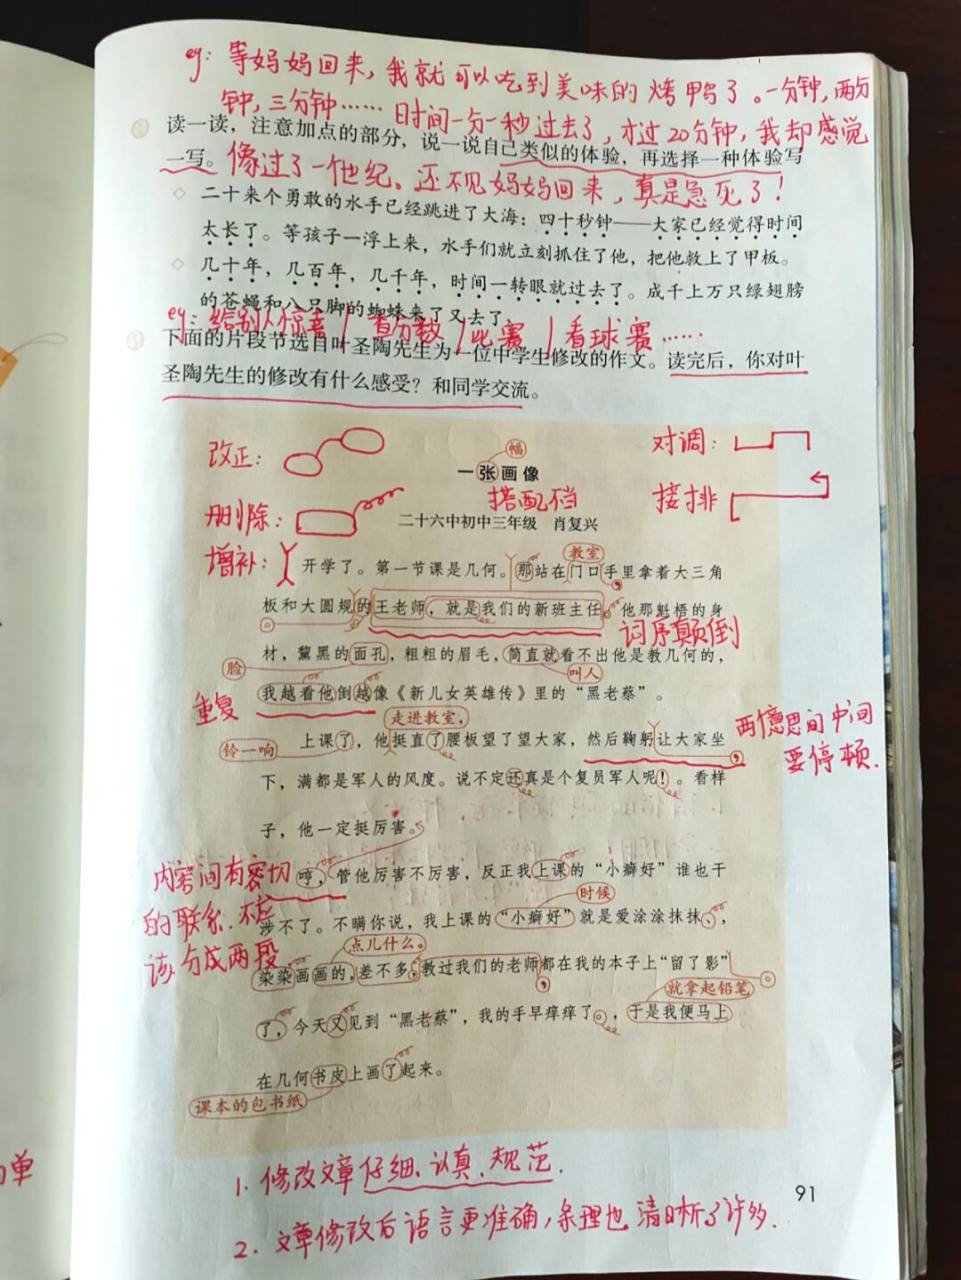 eg: 等妈妈回来，我就可以吃到美味的烤鸭了。一分钟，两分
钟，三分钟……日时间一分一秒过去了，才过20分钟，我却感觉
读一读，注意加点的部分，说一说自己类似的体验，再选择一种体验写
一写。
像过了一个世纪。还不见妈妈回来，真是急死了！
◇ 二十来个勇敢的水手已经跳进了大海：四十秒钟——大家已经觉得时间
太长了。等孩子一浮上来，水手们就立刻抓住了他，把他救上了甲板。
◇ 几十年，几百年，几千年，时间一转眼就过去了。成千上万只绿翅膀
的苍蝇和八只脚的蜘蛛来了又去了
eg: 给别人惊喜/查分数/比赛/看球赛……
下面的片段节选自叶圣陶先生为一位中学生修改的作文。读完后，你对叶
圣陶先生的修改有什么感受？和同学交流。
改正：
对调：
幅
一张画像
删除：
搭配档
接排
二十六中初中三年级 肖复兴
增补：
教室
开学了。第一节课是几何。那站在门口手里拿着大三角
板和大圆规的王老师，就是我们的新班主任。他那魁梧的身
词序颠倒
材，黧黑的面孔，粗粗的眉毛，简直就看不出他是教几何的，
脸
叫人
重复
我越看他倒越像《新儿女英雄传》里的“黑老蔡”。
走进教室，
铃一响
上课了，他挺直了腰板望了望大家，然后鞠躬让大家坐
两个意思间中间
要停顿．
下，满都是军人的风度。说不定还真是个复员军人呢！。看样
子，他一定挺厉害。
内容间有密切
哼，管他厉害不厉害，反正我上课的“小癖好”谁也干
时候
的联系．不应
涉不了。不瞒你说，我上课的“小癖好”就是爱涂涂抹抹、，
点儿什么。
该分成两段
染染画画的，差不多，教过我们的老师都在我的本子上“留了影”
就拿起铅笔
了，今天又见到“黑老蔡”，我的手早痒痒了。，于是我便马上
在几何书皮上画了起来。
课本的包书纸
1. 修改文章仔细、认真、规范．
2. 文章修改后语言更准确，条理也清晰了许多．
91
单